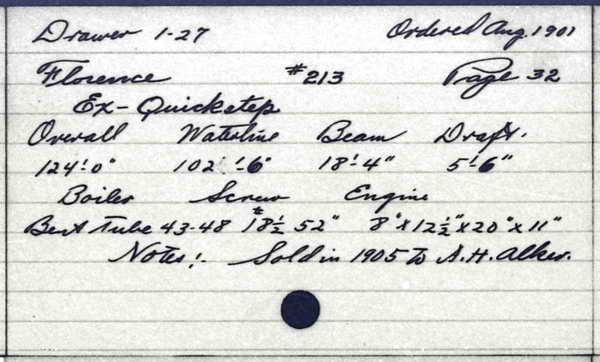 Drawer 1-27 Ordered Aug. 1901
Florence #213 Page 32
Ex-Quickstep
Overall Waterline Beam Draft.
124'-0" 102'-6" 18'-4" 5'-6"
Boiler Screw Engine
Bent Tube 43-48 #18½ 52" 8"x12½"x20"x11"
Notes:- Sold in 1905 to A.H. Alker.